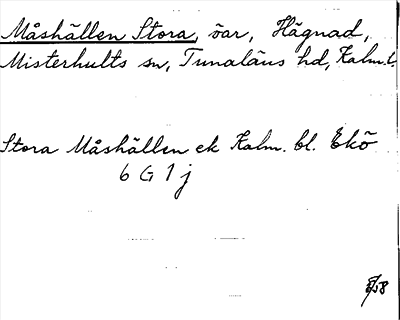 Måshällen Stora, öar, Hägnad,
Misterhults sn, Tunaläns hd, Kalm.l.
Stora Måshällen ek Kalm. bl. Ekö
6 G 1 j